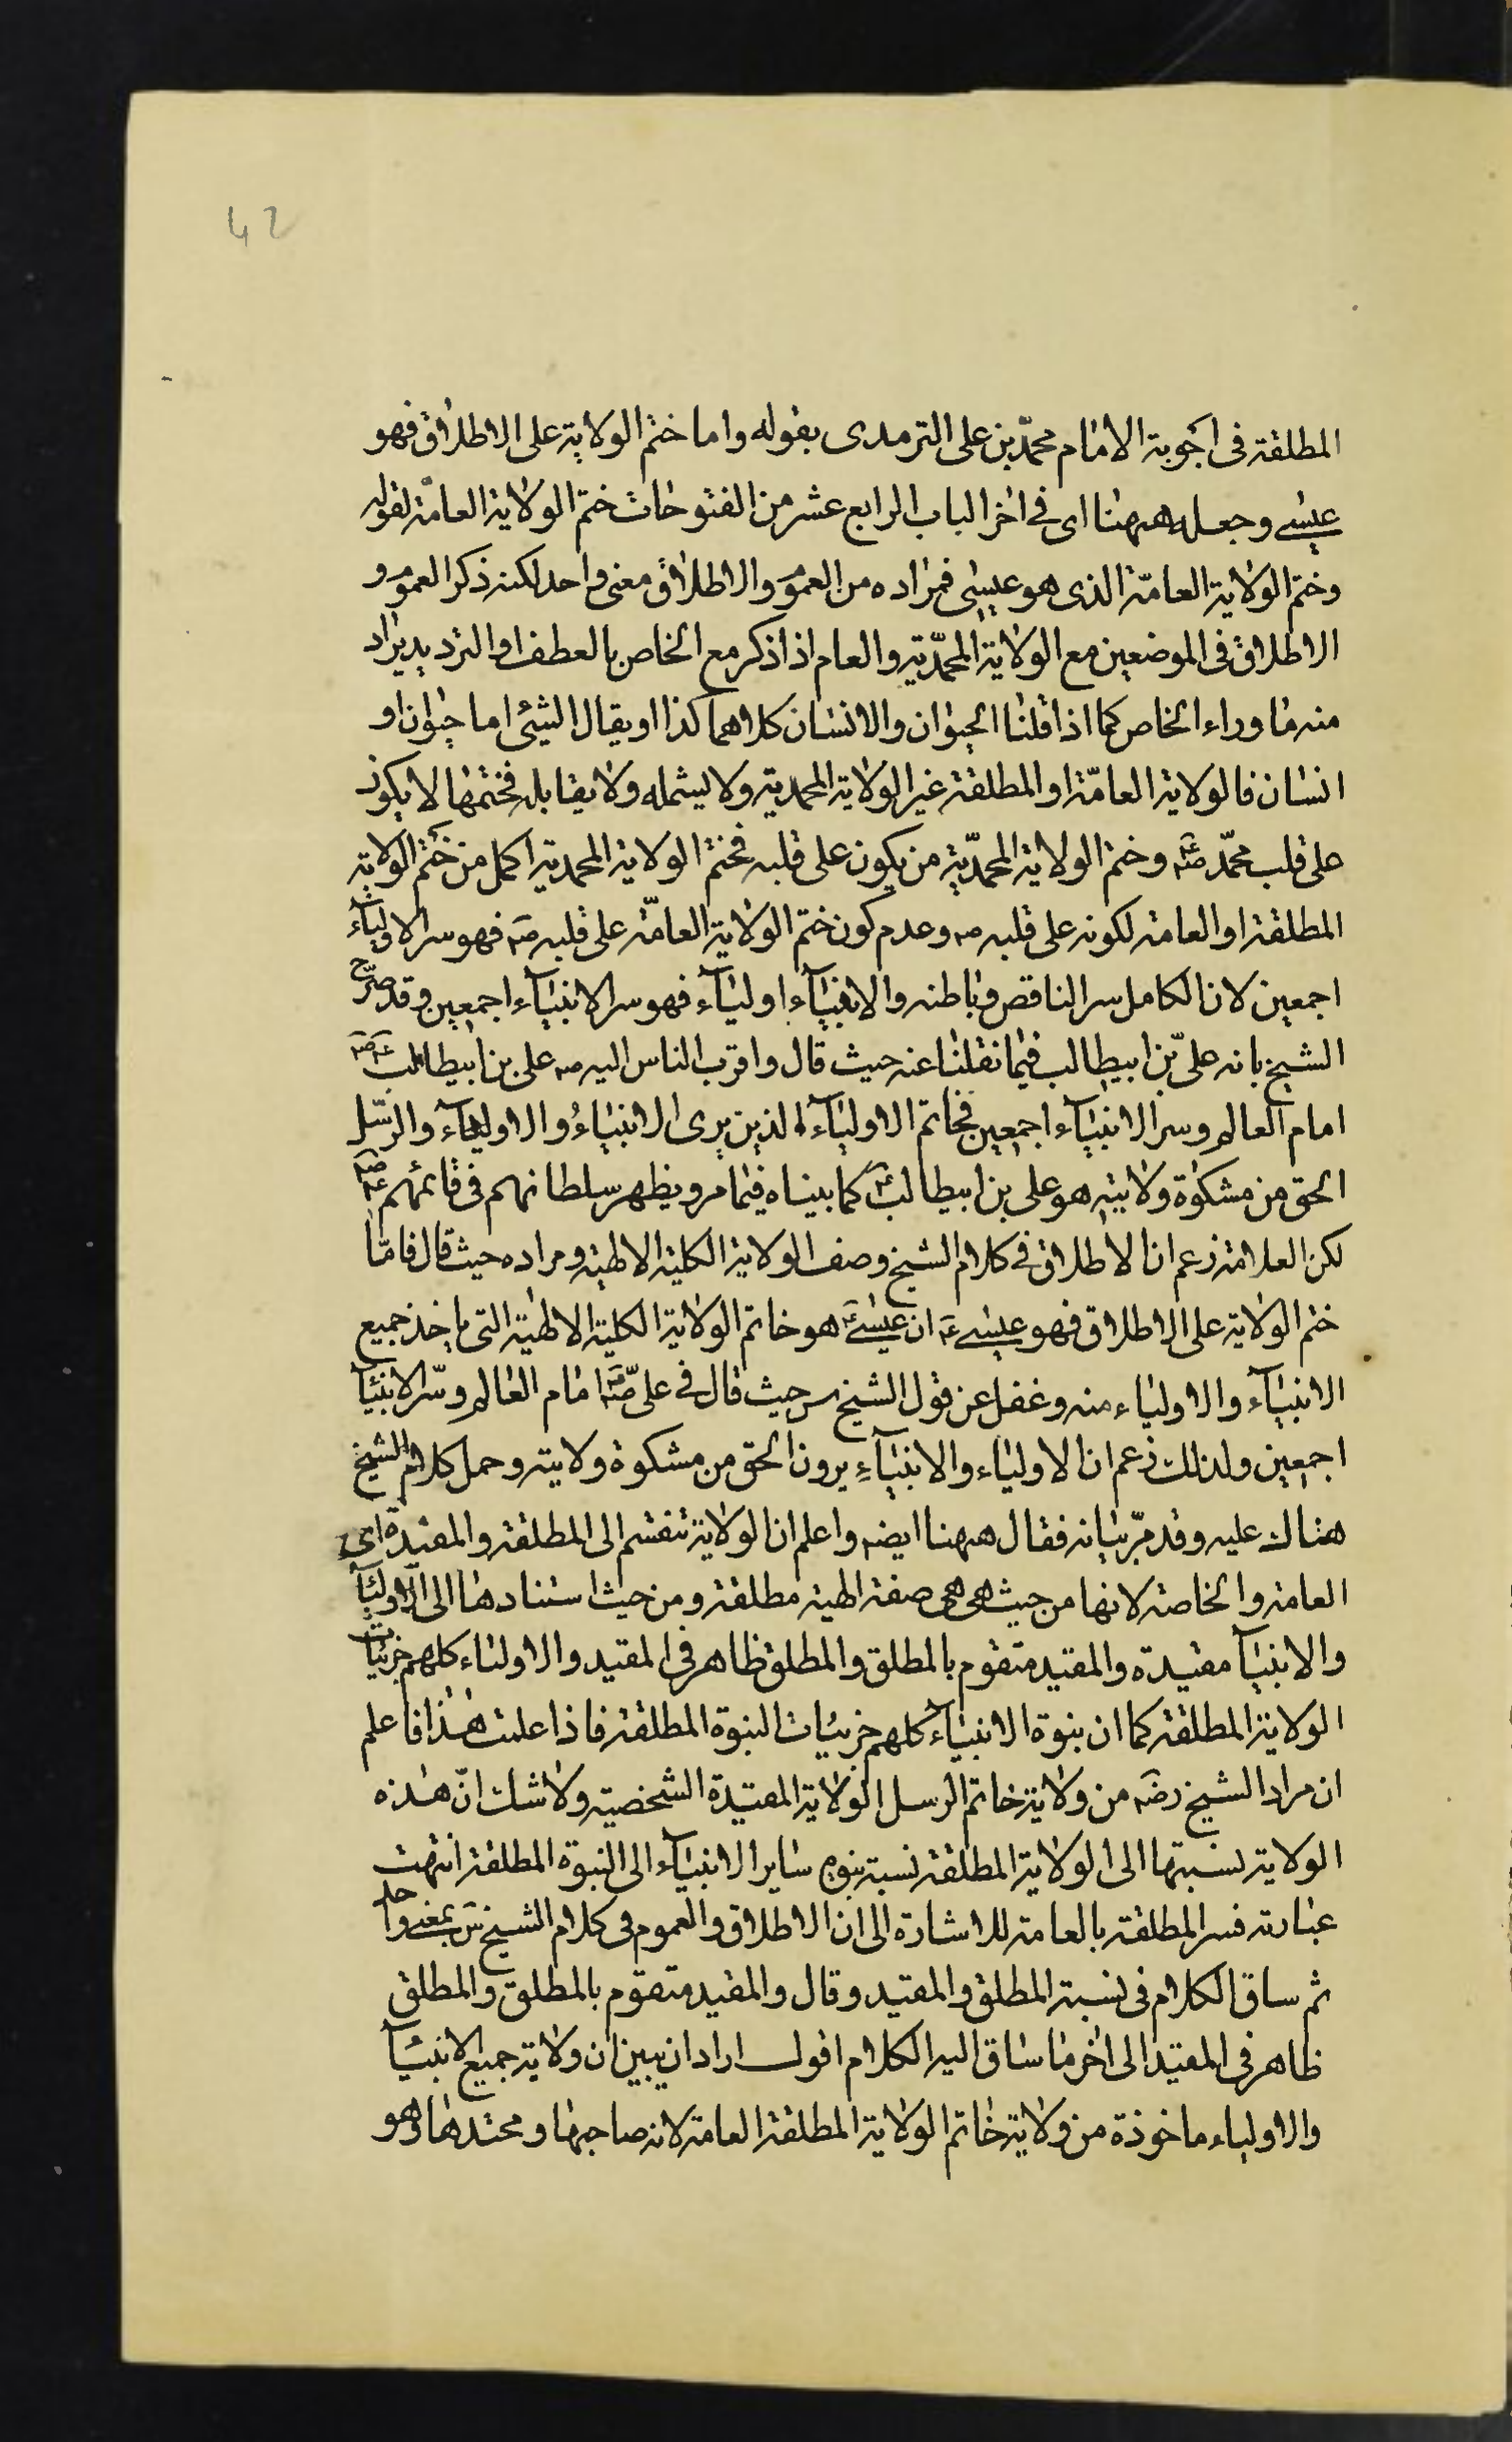 42
المطلقة فى اجوبة الامام محمّد بن على الترمدى بقوله واما ختم الولاية على الاطلاق فهو
عيسى وجعله ههنا اى فى اخر الباب الرابع عشر من الفتوحات ختم الولاية العامّة لقوله
وختم الولاية العامّة الذى هو عيسى فمراده من العموم والاطلاق معنى واحد لكنه ذكر العموم و
الاطلاق فى الموضعين مع الولاية المحمّدية والعام اذا ذكر مع الخاص بالعطف او الترديد يراد
منه ما وراء الخاص كما اذا قلنا الحيوان والانسان كلاهما كذا او يقال الشيئ اما حيوان او
انسان فالولاية العامّة او المطلقة غير الولاية المحمدية ولا يشمله ولا يقابله فختمها لا يكون
على قلب محمّد صلعم وختم الولاية المحمّدية من يكون على قلبه فختم الولاية المحمدية اكمل من ختم الولاية
المطلقة او العامة لكونه على قلبه صم وعدم كون ختم الولاية العامّة على قلبه صم فهو سر الاولياء
اجمعين لان الكامل سر الناقص وباطنه والانبيآء اوليآء فهو سر الانبيآء اجمعين وقد صرّح
الشيخ بانه علىّ بن ابيطالب فيما نقلنا عنه حيث قال واقرب الناس اليه صم على بن ابيطالب
امام العالم وسر الانبيآء اجمعين فخاتم الاوليآء الذين يرى الانبيآءُ والاوليآء والرسّل
الحق من مشكوة ولايته هو على بن ابيطالب عم كما بيناه فيما مر ويظهر سلطانهم فى قائمهم
لكن العلامة زعم ان الاطلاق فى كلام الشيخ وصف الولاية الكلية الالهية ومراده حيث قال فامّا
ختم الولاية على الاطلاق فهو عيسى عم ان عيسى عم هو خاتم الولاية الكلية الالهية التى ياخذ جميع
الانبيآء والاولياء منه وغفل عن قول الشيخ س حيث قال فى على امام العالم وسّر الانبيآ
اجمعين ولذلك زعم ان الاولياء والانبيآءِ يرون الحق من مشكوة ولايته وحمل كلام الشيخ
هناك عليه وقد مرّ بيانه فقال ههنا ايضه واعلم ان الولاية تنقسم الى المطلقة والمقيدة اى
العامة والخاصة لانها من حيث هى هى صفة الهية مطلقة ومن حيث استنادها الى الاوليآ
والانبيآ مقيدة والمقيد متقوم بالمطلق والمطلق ظاهر فى المقيد والاولياء كلهم جزئيات
الولاية المطلقة كما ان نبوة الانبيآء كلهم جزئيات النبوة المطلقة فاذا علمت هذا فاعلم
ان مراد الشيخ رضه من ولاية خاتم الرسل الولاية المقيدة الشخصية ولا شك انّ هذه
الولاية نسبتها الى الولاية المطلقة نسبة نبوة ساير الانبيآء الى النبوة المطلقة انتهت
عبارته فسر المطلقة بالعامة للاشارة الى ان الاطلاق والعموم فى كلام الشيخ س بمعنى واحد
ثم ساق الكلام فى نسبة المطلق والمقيد وقال والمقيد متقوم بالمطلق والمطلق
ظاهر فى المقيد الى اخر ما ساق اليه الكلام اقول اراد ان يبين ان ولاية جميع الانبيآ
والاولياء ماخوذة من ولاية خاتم الولاية المطلقة العامة لانه صاحبها ومحتدها وهو